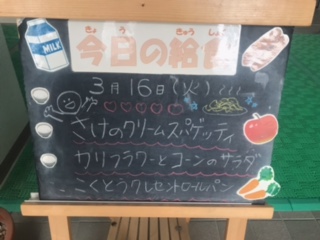 きょう きゅうしょく
MILK
今日の給食
3月16日(火)
さけのクリームスパゲッティ
カリフラワーとコーンのサラダ
こくとうクレセントロールパン